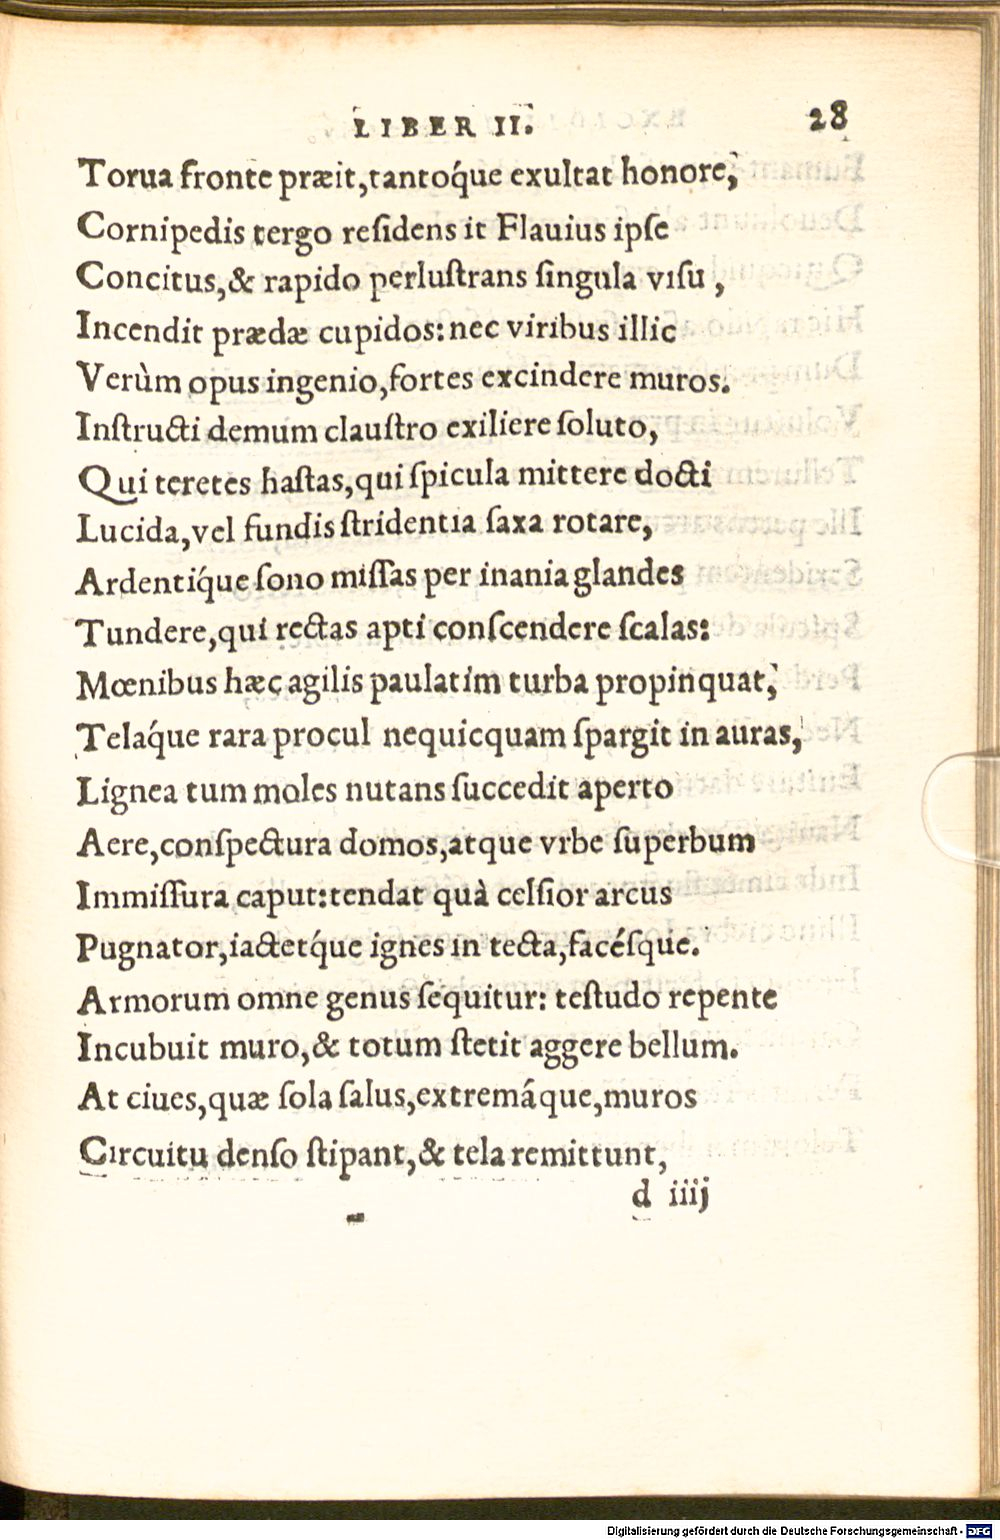 LIBER II. 28
Torua fronte præit, tantóque exultat honore,
Cornipedis tergo residens it Flauius ipse
Concitus, & rapido perlustrans singula visu,
Incendit prædæ cupidos: nec viribus illic
Verùm opus ingenio, fortes excindere muros.
Instructi demum claustro exiliere soluto,
Qui teretes hastas, qui spicula mittere docti
Lucida, vel fundis stridentia saxa rotare,
Ardentíque sono missas per inania glandes
Tundere, qui rectas apti conscendere scalas:
Mœnibus hæc agilis paulatim turba propinquat,
Teláque rara procul nequicquam spargit in auras,
Lignea tum moles nutans succedit aperto
Aere, conspectura domos, atque vrbe superbum
Immissura caput: tendat quà celsior arcus
Pugnator, iactetq́ue ignes in tecta, facésque.
Armorum omne genus sequitur: testudo repente
Incubuit muro, & totum stetit aggere bellum.
At ciues, quæ sola salus, extremáque, muros
Circuitu denso stipant, & tela remittunt,
d iiij
Digitalisierung gefördert durch die Deutsche Forschungsgemeinschaft - DFG